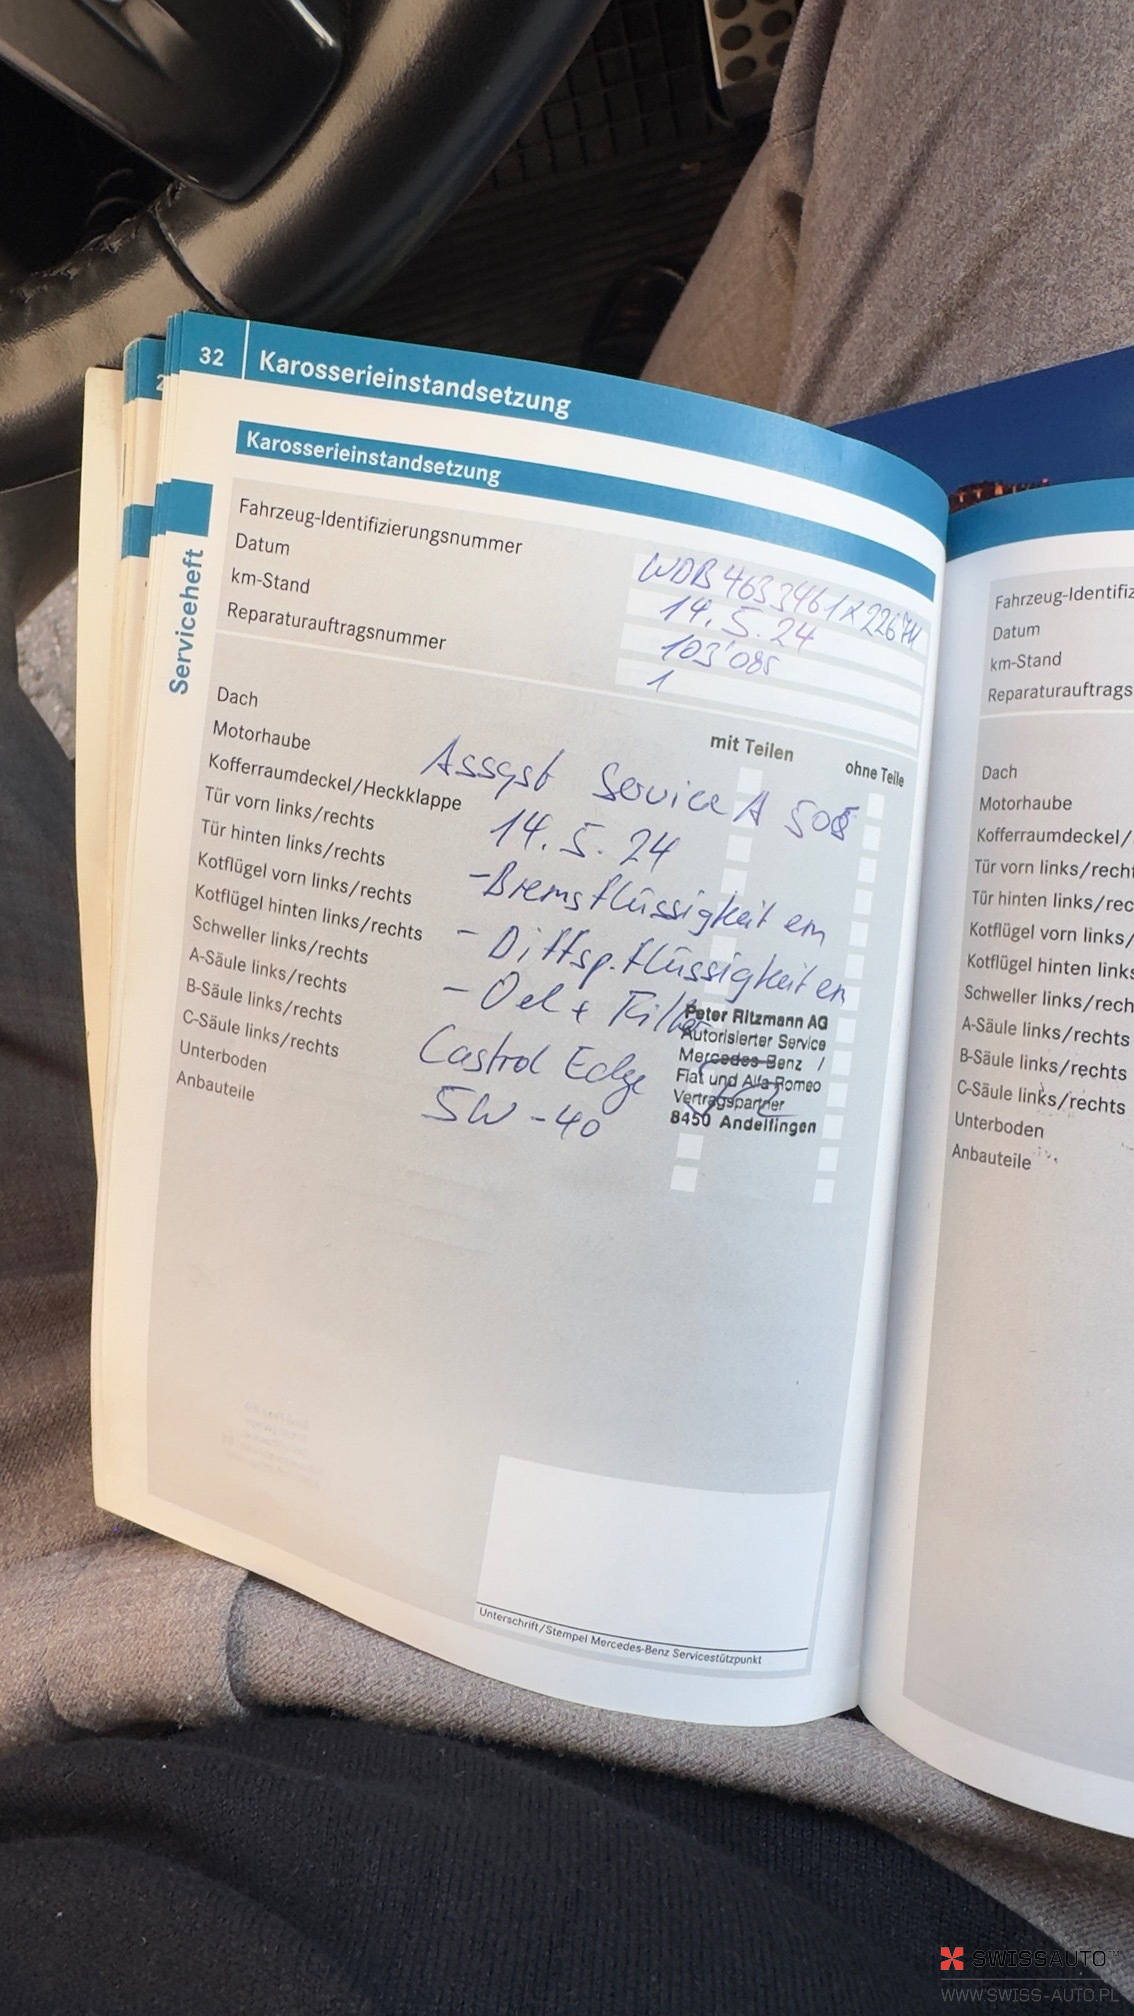 32 Karosserieinstandsetzung
Karosserieinstandsetzung
Serviceheft
Fahrzeug-Identifizierungsnummer
Datum 14.5.24
km-Stand 103'085
Reparaturauftragsnummer 1
mit Teilen ohne Teile
Dach
Motorhaube
Kofferraumdeckel/Heckklappe
Tür vorn links/rechts
Tür hinten links/rechts
Kotflügel vorn links/rechts
Kotflügel hinten links/rechts
Schweller links/rechts
A-Säule links/rechts
B-Säule links/rechts
C-Säule links/rechts
Unterboden
Anbauteile
Assyst Service A
14.5.24
- Bremsflüssigkeit ern
- Diffsp.flüssigkeit ern
- Oel + Filter
Castrol Edge
5W-40
Peter Ritzmann AG
Autorisierter Service
Mercedes-Benz /
Fiat und Alfa Romeo
Vertragspartner
8450 Andelfingen
Unterschrift/Stempel Mercedes-Benz Servicestützpunkt
Fahrzeug-Identifiz
Datum
km-Stand
Reparaturauftrags
Dach
Motorhaube
Kofferraumdeckel/
Tür vorn links/rech
Tür hinten links/rec
Kotflügel vorn links/
Kotflügel hinten links
Schweller links/rech
A-Säule links/rechts
B-Säule links/rechts
C-Säule links/rechts
Unterboden
Anbauteile
SWISSAUTO
WWW.SWISS-AUTO.PL